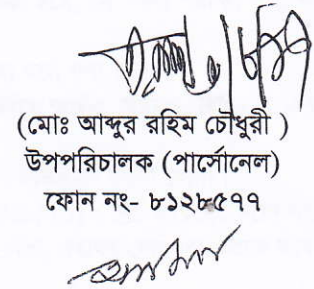 (মোঃ আব্দুর রহিম চৌধুরী )
উপপরিচালক (পার্সোনেল)
ফোন নং- ৮১২৮৫৭৭